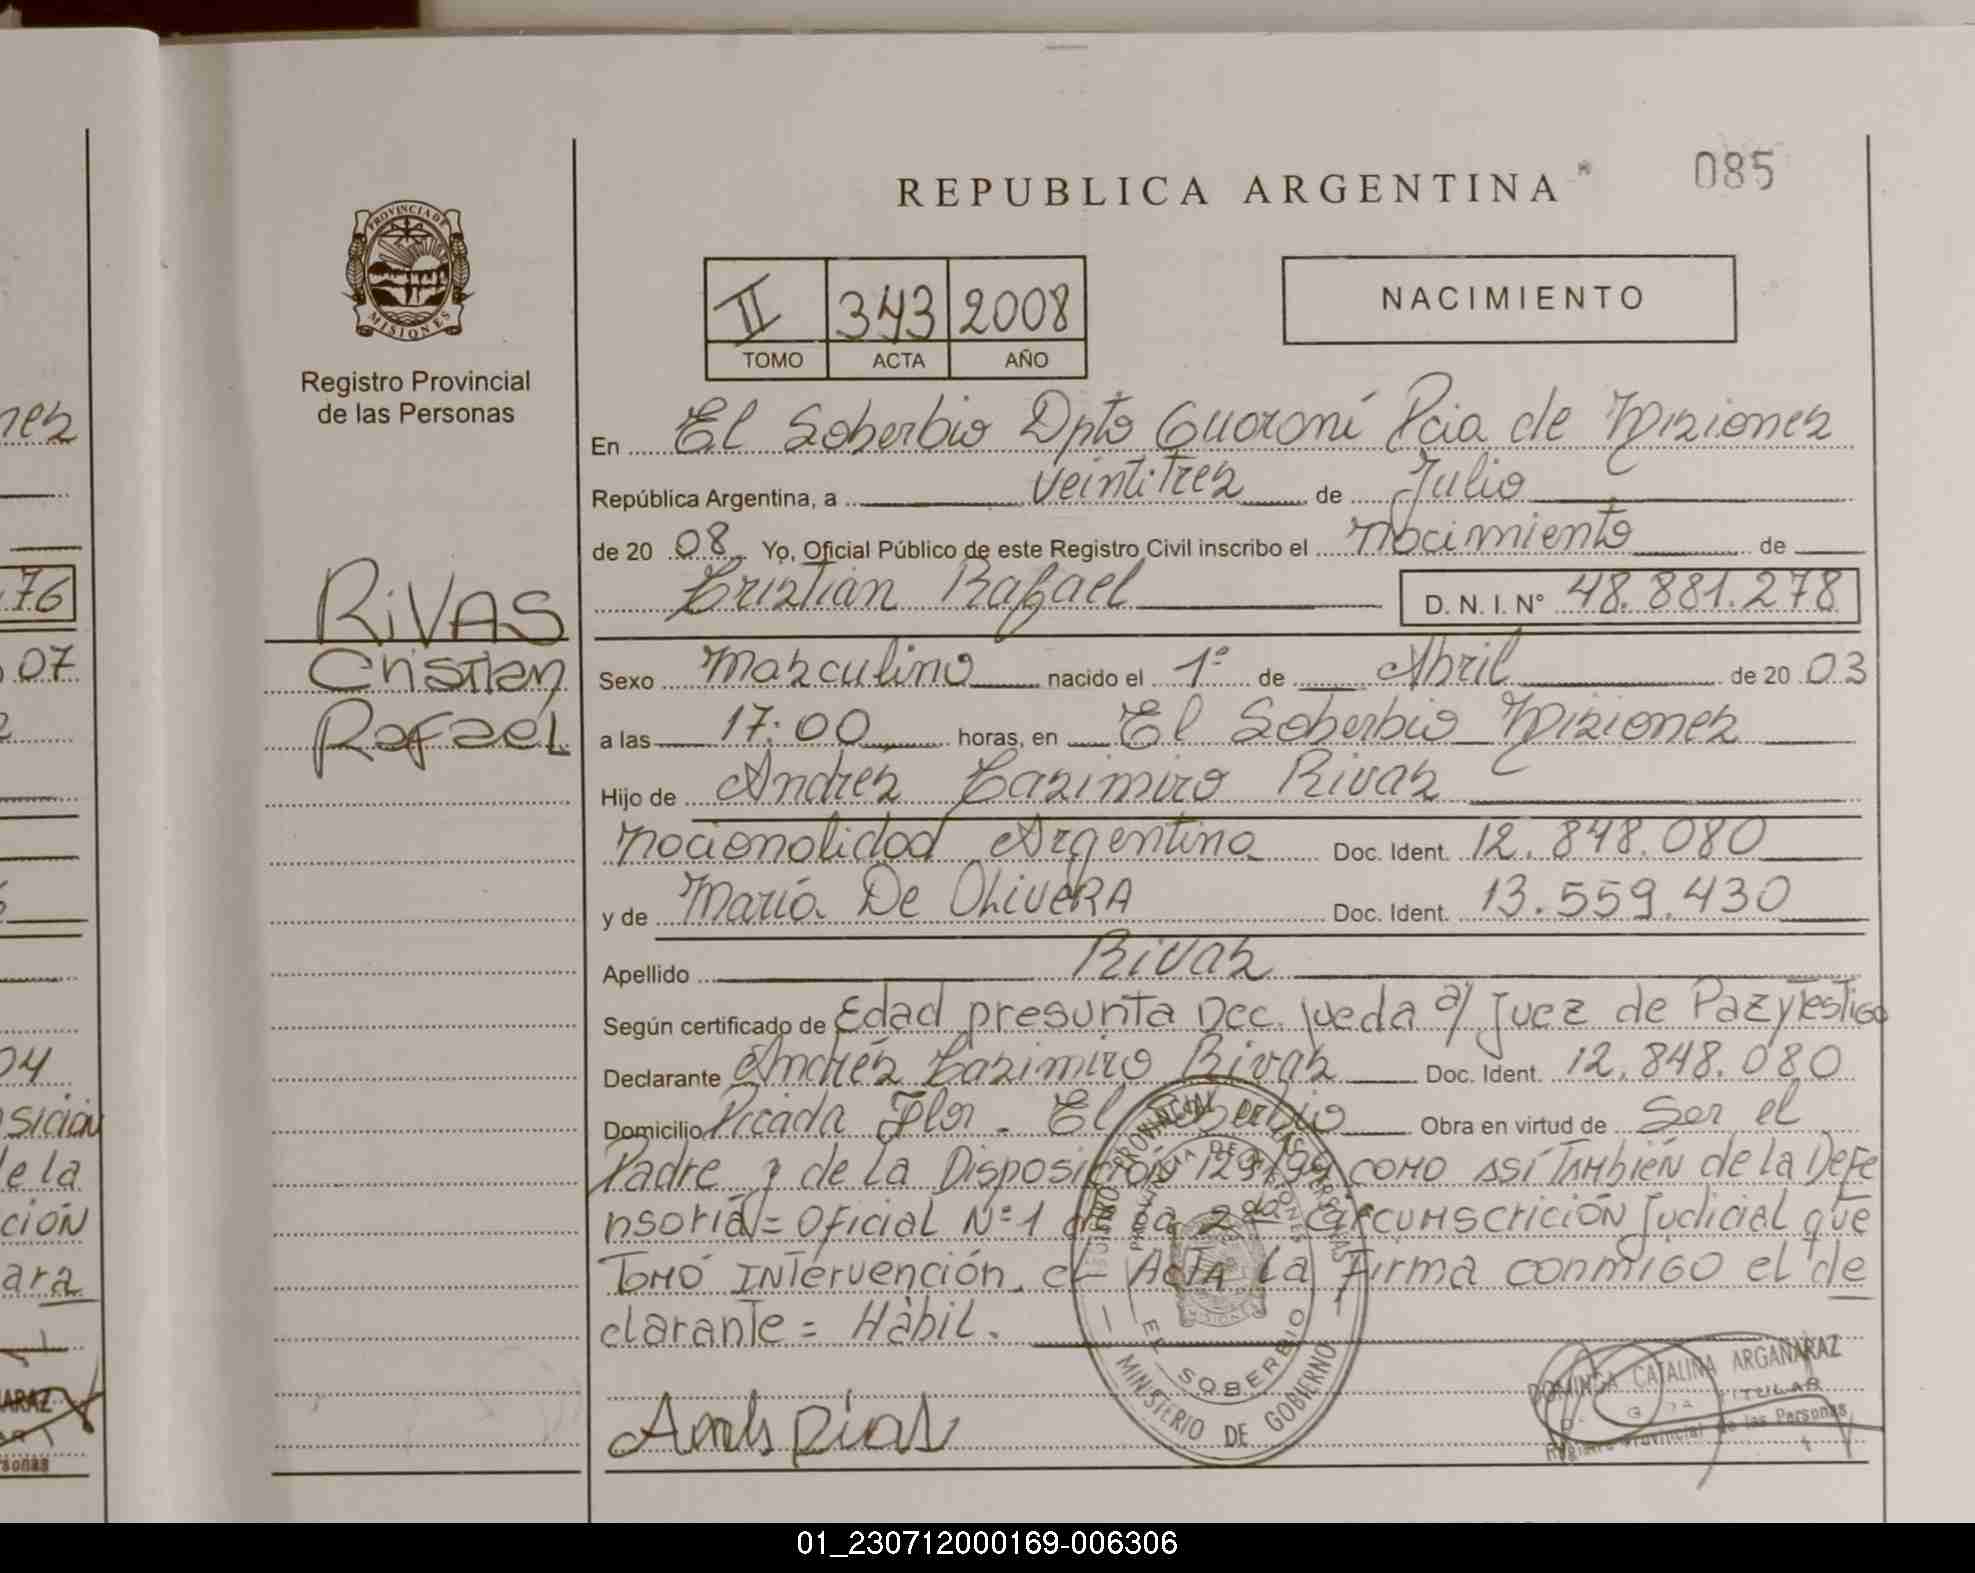 085
REPUBLICA ARGENTINA
PROVINCIA DE
MISIONES
Registro Provincial
de las Personas
II 343 2008
TOMO ACTA AÑO
NACIMIENTO
En El Soberbio Dpto Guaraní Pcia de Misiones
República Argentina, a veintitres de Julio
de 20 08 Yo, Oficial Público de este Registro Civil inscribo el Nacimiento de
Cristian Rafael D. N. I. Nº 48.881.278
RIVAS
Cristian
Rafael
Sexo Masculino nacido el 1º de Abril de 20 03
a las 17:00 horas, en El Soberbio Misiones
Hijo de Andrés Casimiro Rivas
Nacionalidad Argentina Doc. Ident. 12.848.080
y de María De Olivera Doc. Ident. 13.559.430
Apellido Rivas
Según certificado de Edad presunta Dcc. Jueda a/ Juez de Paz y Testigo
Declarante Andrés Casimiro Rivas Doc. Ident. 12.848.080
Domicilio Picada Flor - El Soberbio Obra en virtud de Ser el
Padre y de la Disposición 129/99 como así También de la Defe
nsoria = Oficial Nº 1 de la 2da Circumscrición Judicial que
Tomó Intervención. el Acta la Firma conmigo el de
clarante = Hàbil.
REGISTRO PROVINCIAL DE LAS PERSONAS
PROVINCIA DE MISIONES
EL SOBERBIO
MINISTERIO DE GOBIERNO
DOMINGA CATALINA ARGAÑARAZ
TITULAR
Registro Provincial de las Personas
nes
76
07
04
sición
de la
ción
ara
ARAZ
sonas
01_230712000169-006306